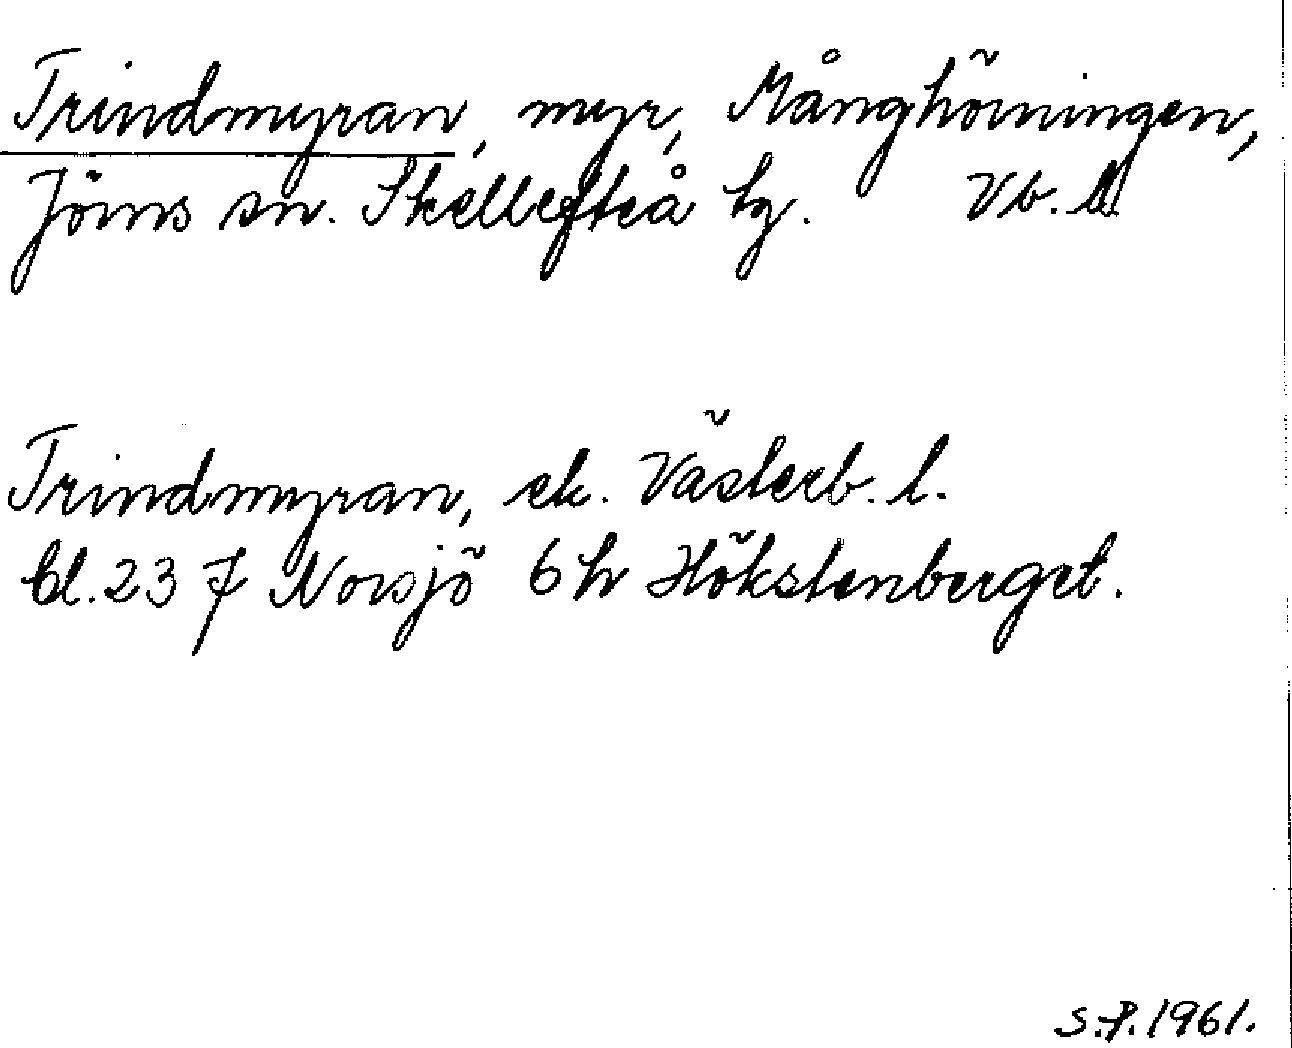 Trindmyran, myr, Månghörningen,
Jörns sn. Skellefteå tg. Vb. l.
Trindmyran, ek. Västerb. l.
bl. 23 J Norsjö 6 h Hökstenberget.
S.P. 1961.